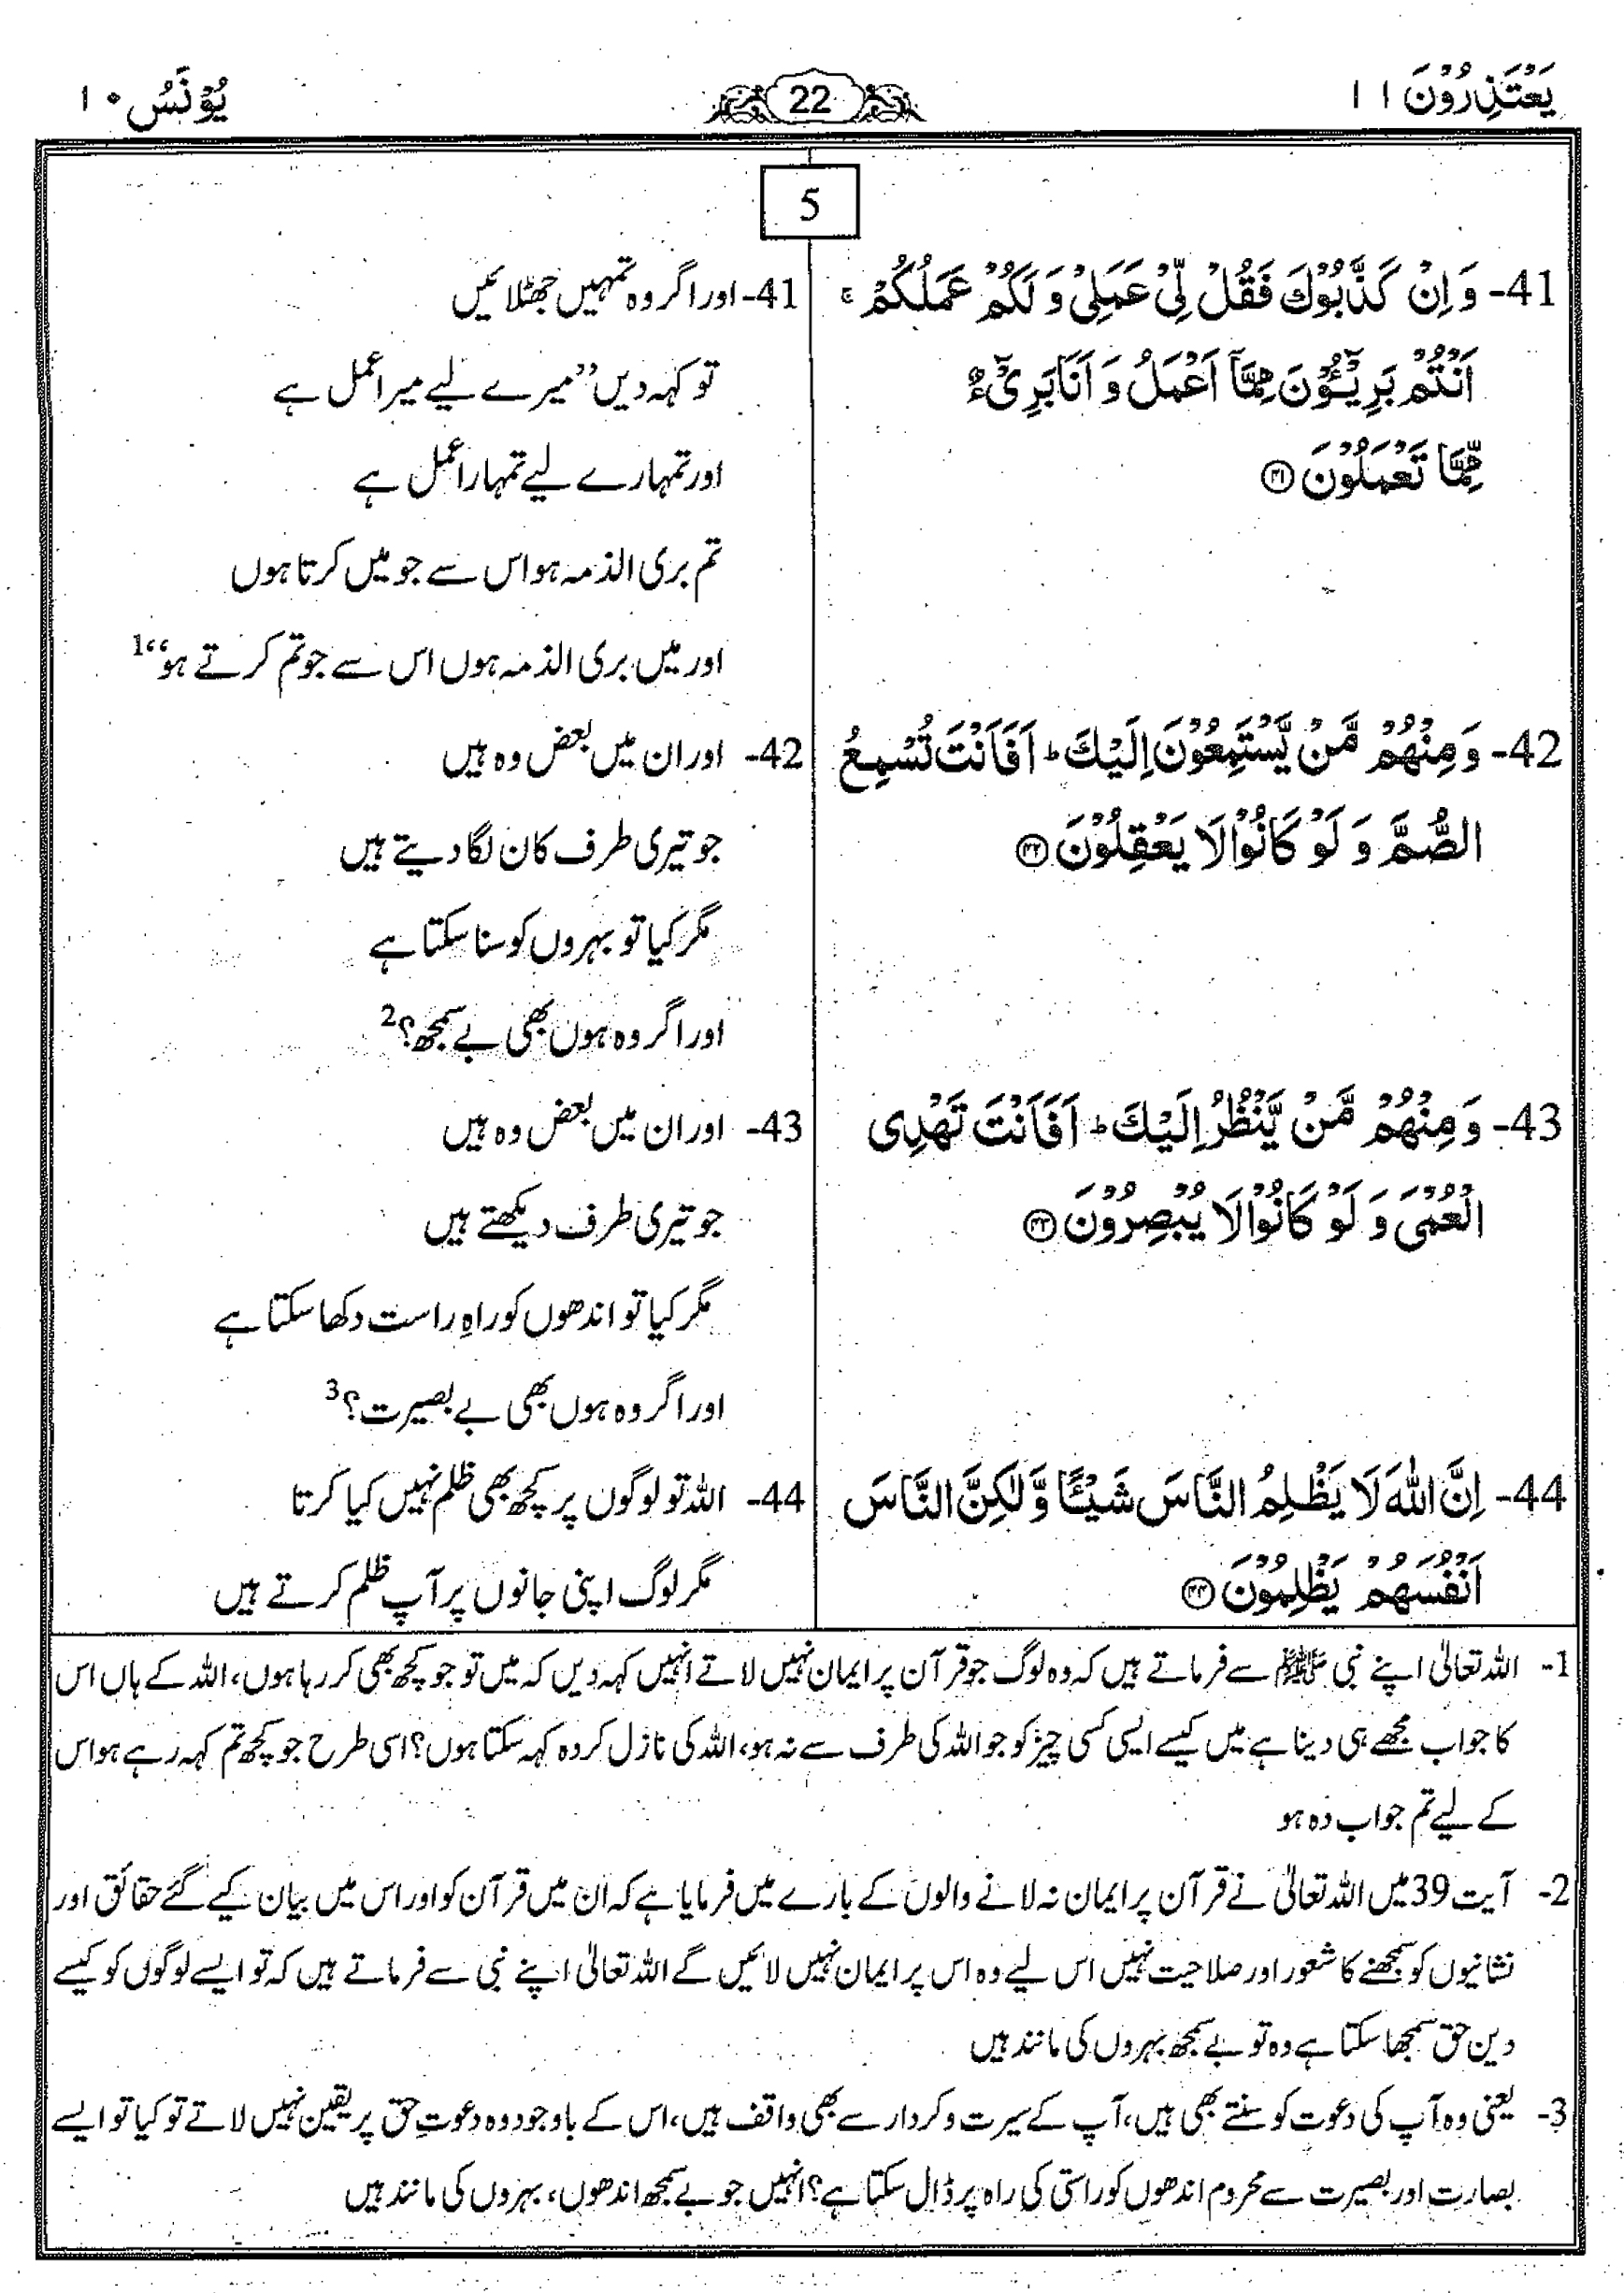 یَعْتَذِرُوْنَ ۱۱
22
یُوْنَسُ ۱۰
5
41- وَ اِنْ كَذَّبُوْكَ فَقُلْ لِّیْ عَمَلِیْ وَ لَكُمْ عَمَلُكُمْ ۚ
اَنْتُمْ بَرِیْٓــُٔوْنَ مِمَّاۤ اَعْمَلُ وَ اَنَا بَرِیْٓءٌ
مِّمَّا تَعْمَلُوْنَ ﴿۴۱﴾
41- اور اگر وہ تمہیں جھٹلائیں
تو کہہ دیں ’’میرے لیے میرا عمل ہے
اور تمہارے لیے تمہارا عمل ہے
تم بری الذمہ ہو اس سے جو میں کرتا ہوں
اور میں بری الذمہ ہوں اس سے جو تم کرتے ہو‘‘1
42- وَ مِنْهُمْ مَّنْ یَّسْتَمِعُوْنَ اِلَیْكَ ؕ اَفَاَنْتَ تُسْمِعُ
الصُّمَّ وَ لَوْ كَانُوْا لَا یَعْقِلُوْنَ ﴿۴۲﴾
42- اور ان میں بعض وہ ہیں
جو تیری طرف کان لگا دیتے ہیں
مگر کیا تو بہروں کو سنا سکتا ہے
اور اگر وہ ہوں بھی بے سمجھ؟2
43- وَ مِنْهُمْ مَّنْ یَّنْظُرُ اِلَیْكَ ؕ اَفَاَنْتَ تَهْدِی
الْعُمْیَ وَ لَوْ كَانُوْا لَا یُبْصِرُوْنَ ﴿۴۳﴾
43- اور ان میں بعض وہ ہیں
جو تیری طرف دیکھتے ہیں
مگر کیا تو اندھوں کو راہِ راست دکھا سکتا ہے
اور اگر وہ ہوں بھی بے بصیرت؟3
44- اِنَّ اللّٰهَ لَا یَظْلِمُ النَّاسَ شَیْــًٔا وَّ لٰكِنَّ النَّاسَ
اَنْفُسَهُمْ یَظْلِمُوْنَ ﴿۴۴﴾
44- اللہ تو لوگوں پر کچھ بھی ظلم نہیں کیا کرتا
مگر لوگ اپنی جانوں پر آپ ظلم کرتے ہیں
1- اللہ تعالیٰ اپنے نبی ﷺ سے فرماتے ہیں کہ وہ لوگ جو قرآن پر ایمان نہیں لاتے انہیں کہہ دیں کہ میں تو جو کچھ بھی کر رہا ہوں، اللہ کے ہاں اس
کا جواب مجھے ہی دینا ہے میں کیسے ایسی کسی چیز کو جو اللہ کی طرف سے نہ ہو، اللہ کی نازل کردہ کہہ سکتا ہوں؟ اسی طرح جو کچھ تم کہہ رہے ہو اس
کے لیے تم جواب دہ ہو
2- آیت 39 میں اللہ تعالیٰ نے قرآن پر ایمان نہ لانے والوں کے بارے میں فرمایا ہے کہ ان میں قرآن کو اور اس میں بیان کیے گئے حقائق اور
نشانیوں کو سمجھنے کا شعور اور صلاحیت نہیں اس لیے وہ اس پر ایمان نہیں لائیں گے اللہ تعالیٰ اپنے نبی سے فرماتے ہیں کہ تو ایسے لوگوں کو کیسے
دین حق سمجھا سکتا ہے وہ تو بے سمجھ بہروں کی مانند ہیں
3- یعنی وہ آپ کی دعوت کو سنتے بھی ہیں، آپ کے سیرت و کردار سے بھی واقف ہیں، اس کے باوجود وہ دعوتِ حق پر یقین نہیں لاتے تو کیا تو ایسے
بصارت اور بصیرت سے محروم اندھوں کو راستی کی راہ پر ڈال سکتا ہے؟ انہیں جو بے سمجھ اندھوں، بہروں کی مانند ہیں